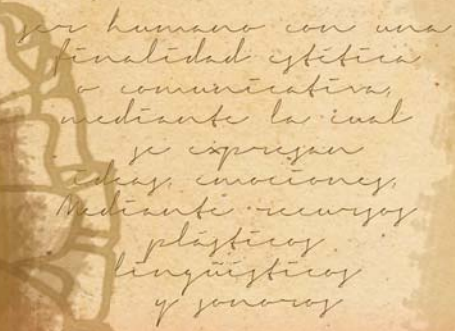 ser humano con una
finalidad estética
o comunicativa,
mediante la cual
se expresan
ideas, emociones,
Mediante recursos
plásticos
lingüísticos
y sonoros